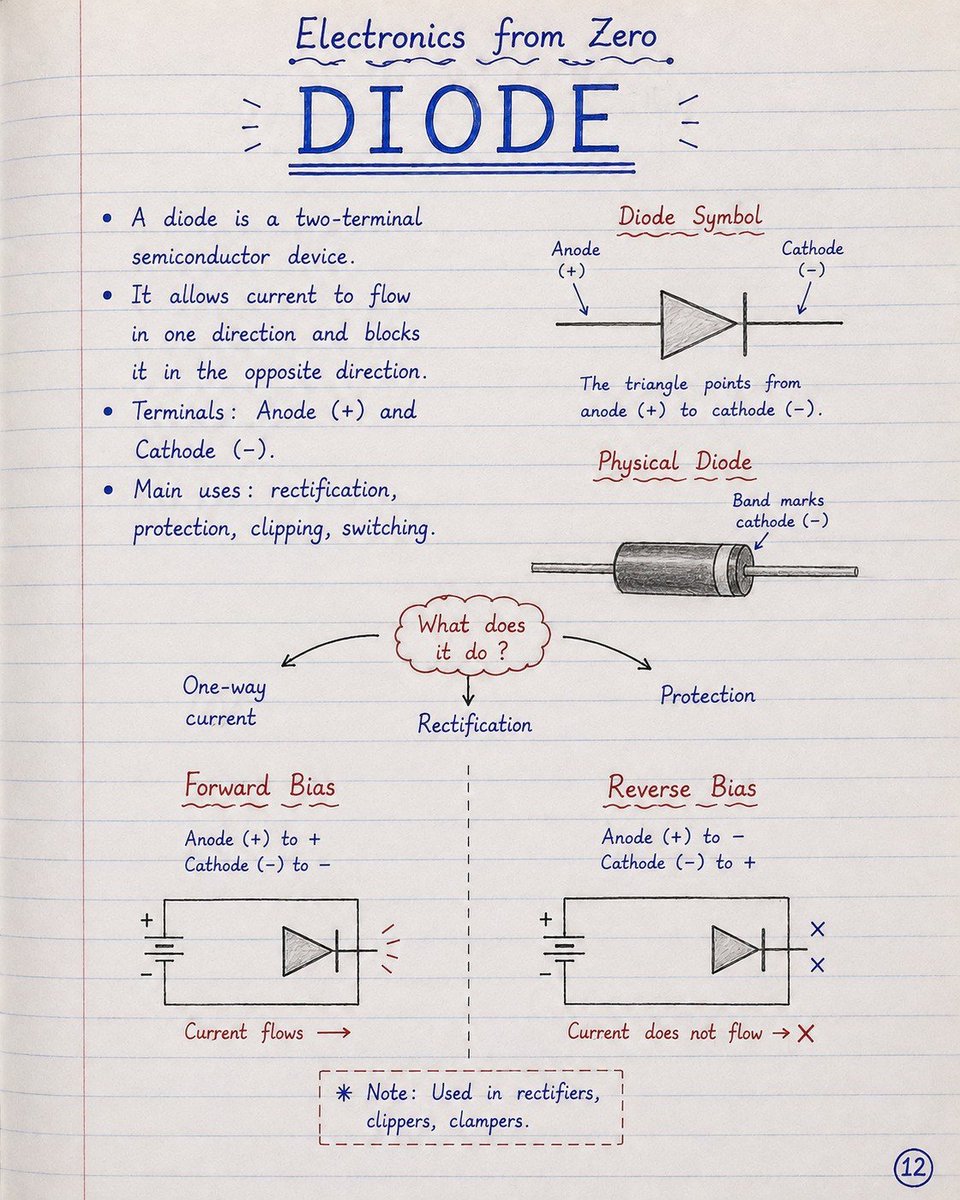 Electronics from Zero
DIODE
• A diode is a two-terminal
semiconductor device.
• It allows current to flow
in one direction and blocks
it in the opposite direction.
• Terminals: Anode (+) and
Cathode (−).
• Main uses: rectification,
protection, clipping, switching.
Diode Symbol
Anode
(+)
Cathode
(−)
The triangle points from
anode (+) to cathode (−).
Physical Diode
Band marks
cathode (−)
What does
it do ?
One-way
current
Rectification
Protection
Forward Bias
Anode (+) to +
Cathode (−) to −
+
−
Current flows →
Reverse Bias
Anode (+) to −
Cathode (−) to +
+
−
×
×
Current does not flow → ×
* Note: Used in rectifiers,
clippers, clampers.
12